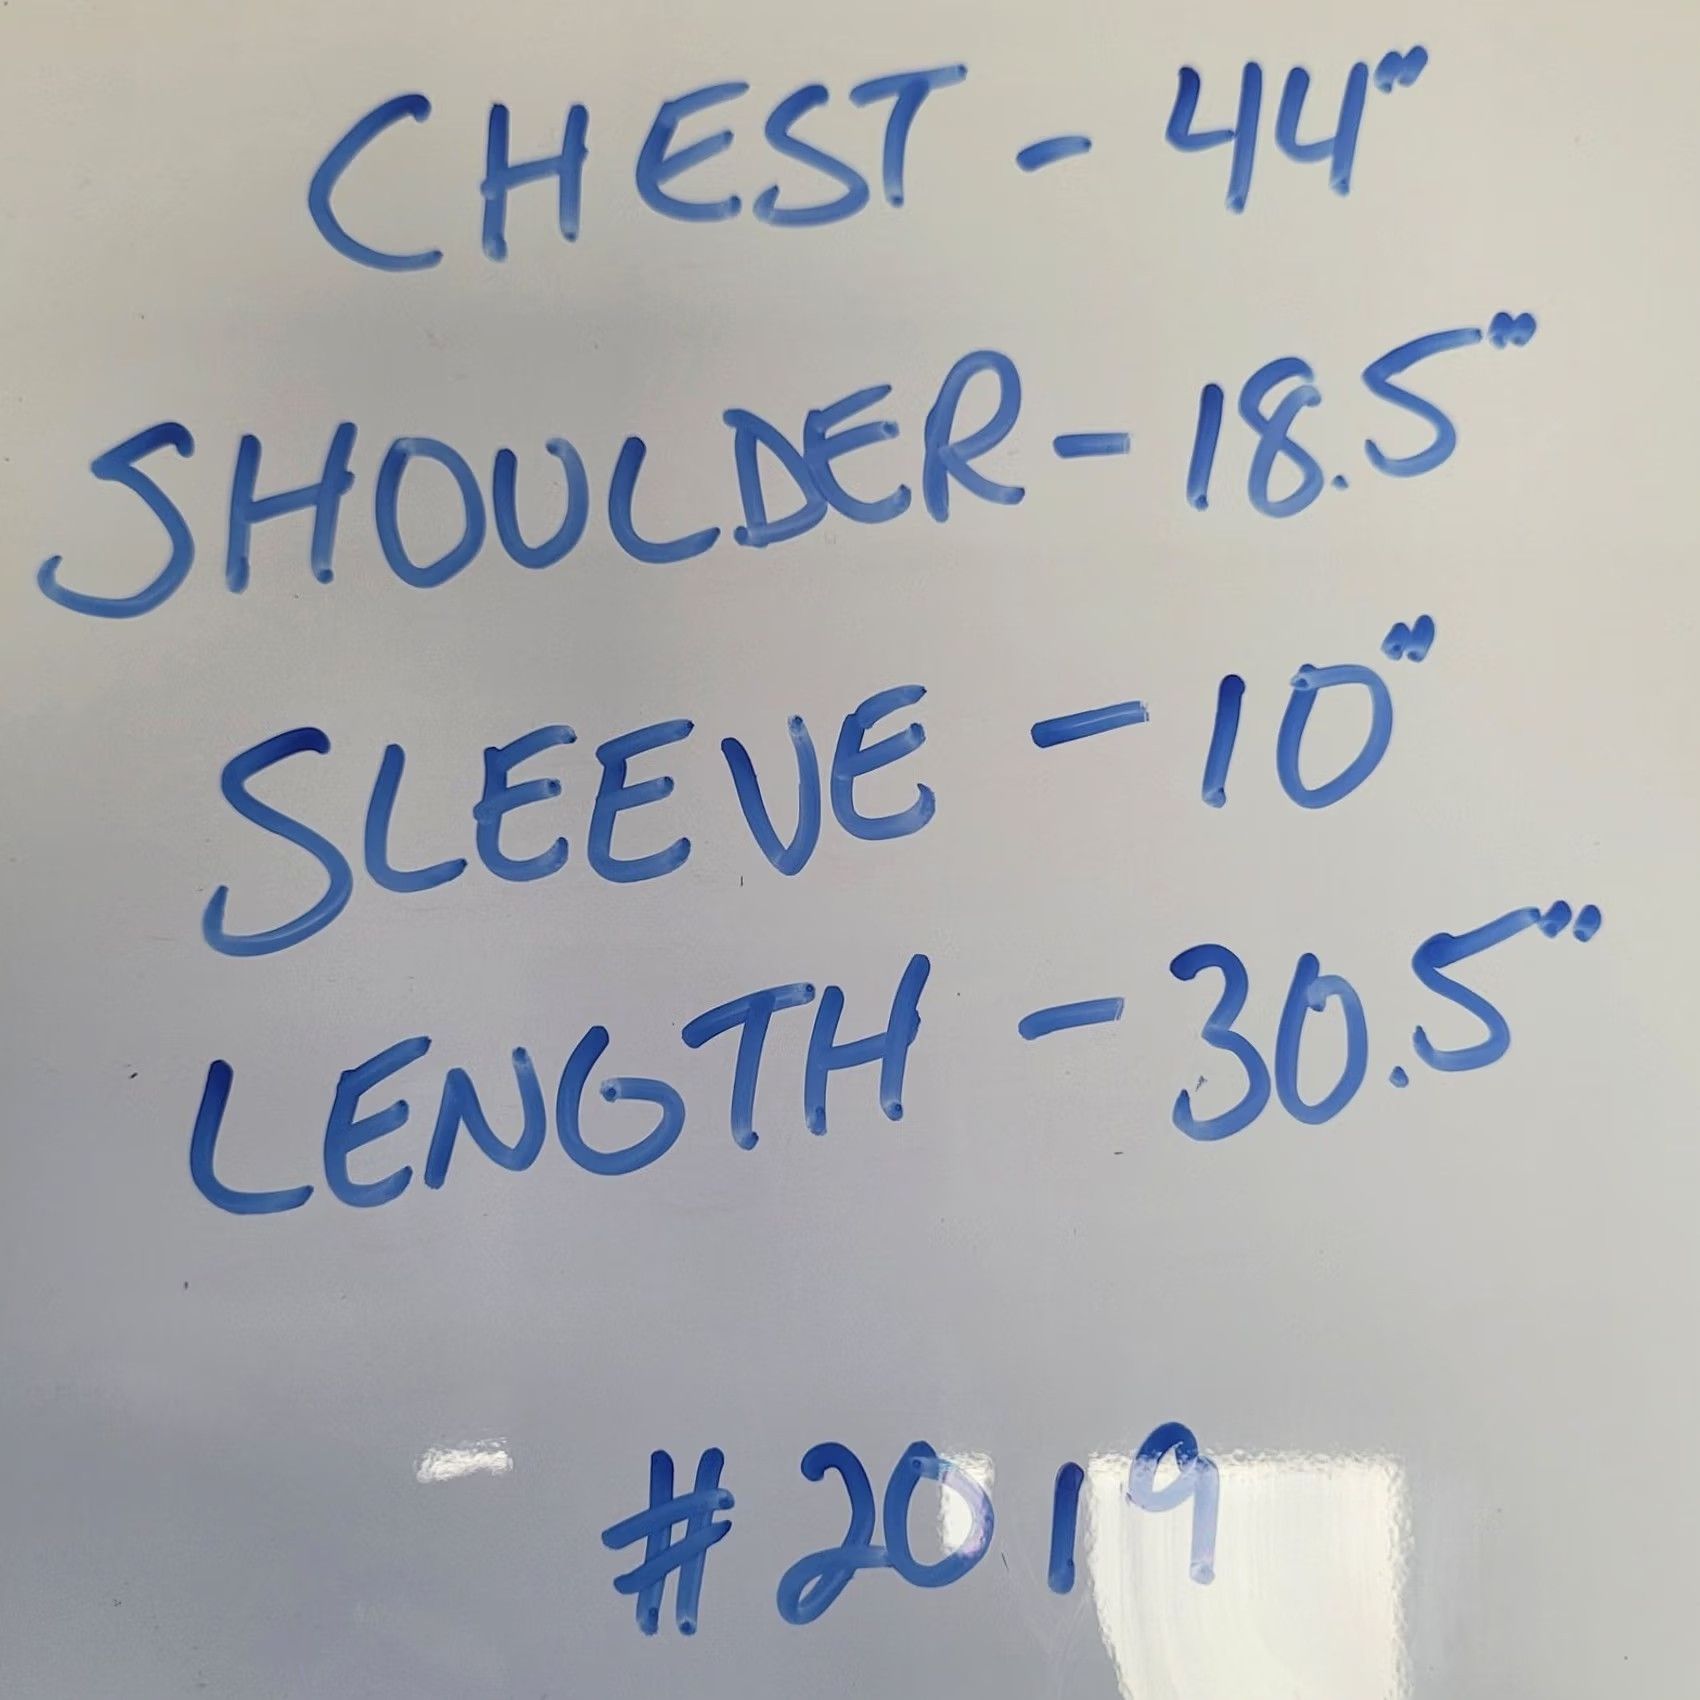 CHEST - 44"
SHOULDER - 18.5"
SLEEVE - 10"
LENGTH - 30.5"
#2019